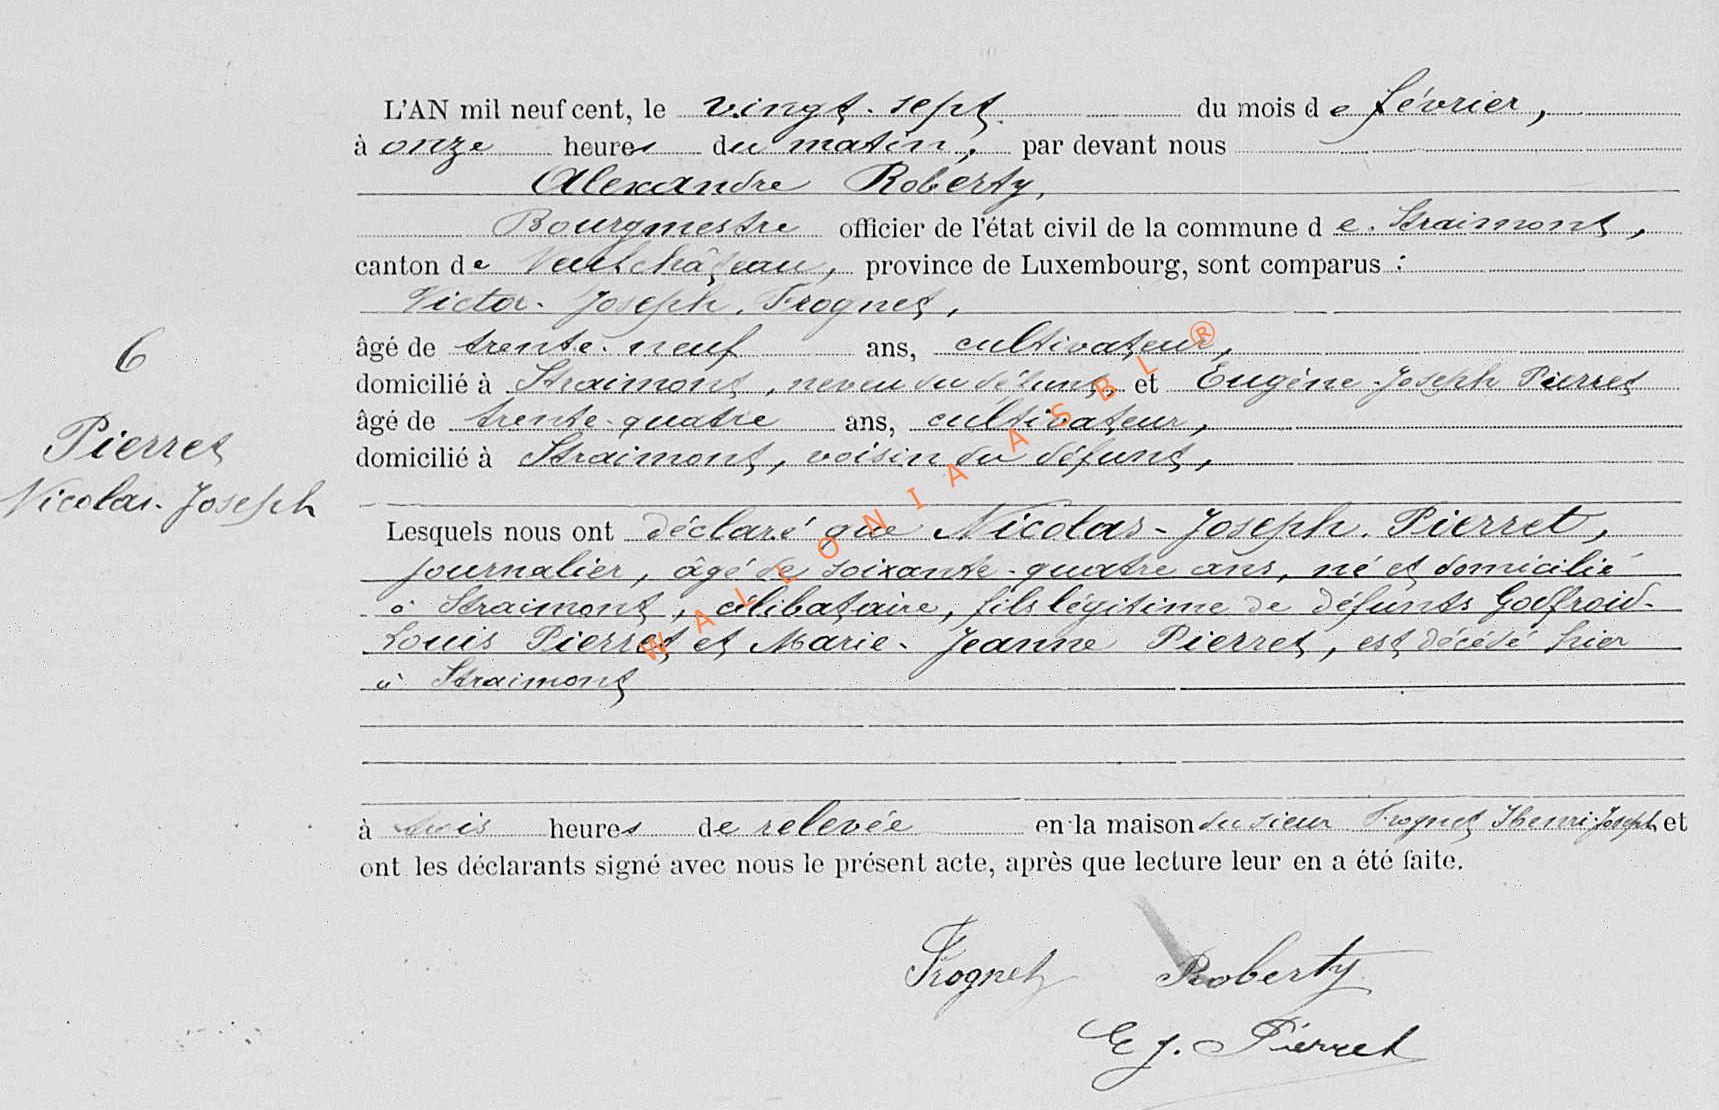 L'AN mil neuf cent, le vingt-sept du mois de février,
à onze heures du matin, par devant nous
Alexandre Roberty,
Bourgmestre officier de l'état civil de la commune de Straimont,
canton de Neufchâteau, province de Luxembourg, sont comparus :
Victor-Joseph Frognet,
âgé de trente-neuf ans, cultivateur,
domicilié à Straimont, neveu du défunt, et Eugène-Joseph Pierret
âgé de trente-quatre ans, cultivateur,
domicilié à Straimont, voisin du défunt,
6
Pierret
Nicolas-Joseph
Lesquels nous ont déclaré que Nicolas-Joseph Pierret,
journalier, âgé de soixante-quatre ans, né et domicilié
à Straimont, célibataire, fils légitime de défunts Godfroid-
Louis Pierret et Marie-Jeanne Pierret, est décédé hier
à Straimont
à trois heures de relevée en la maison du sieur Frognet Henri-Joseph et
ont les déclarants signé avec nous le présent acte, après que lecture leur en a été faite.
Frognet Roberty
E J. Pierret
WALLONIA ASBL ®